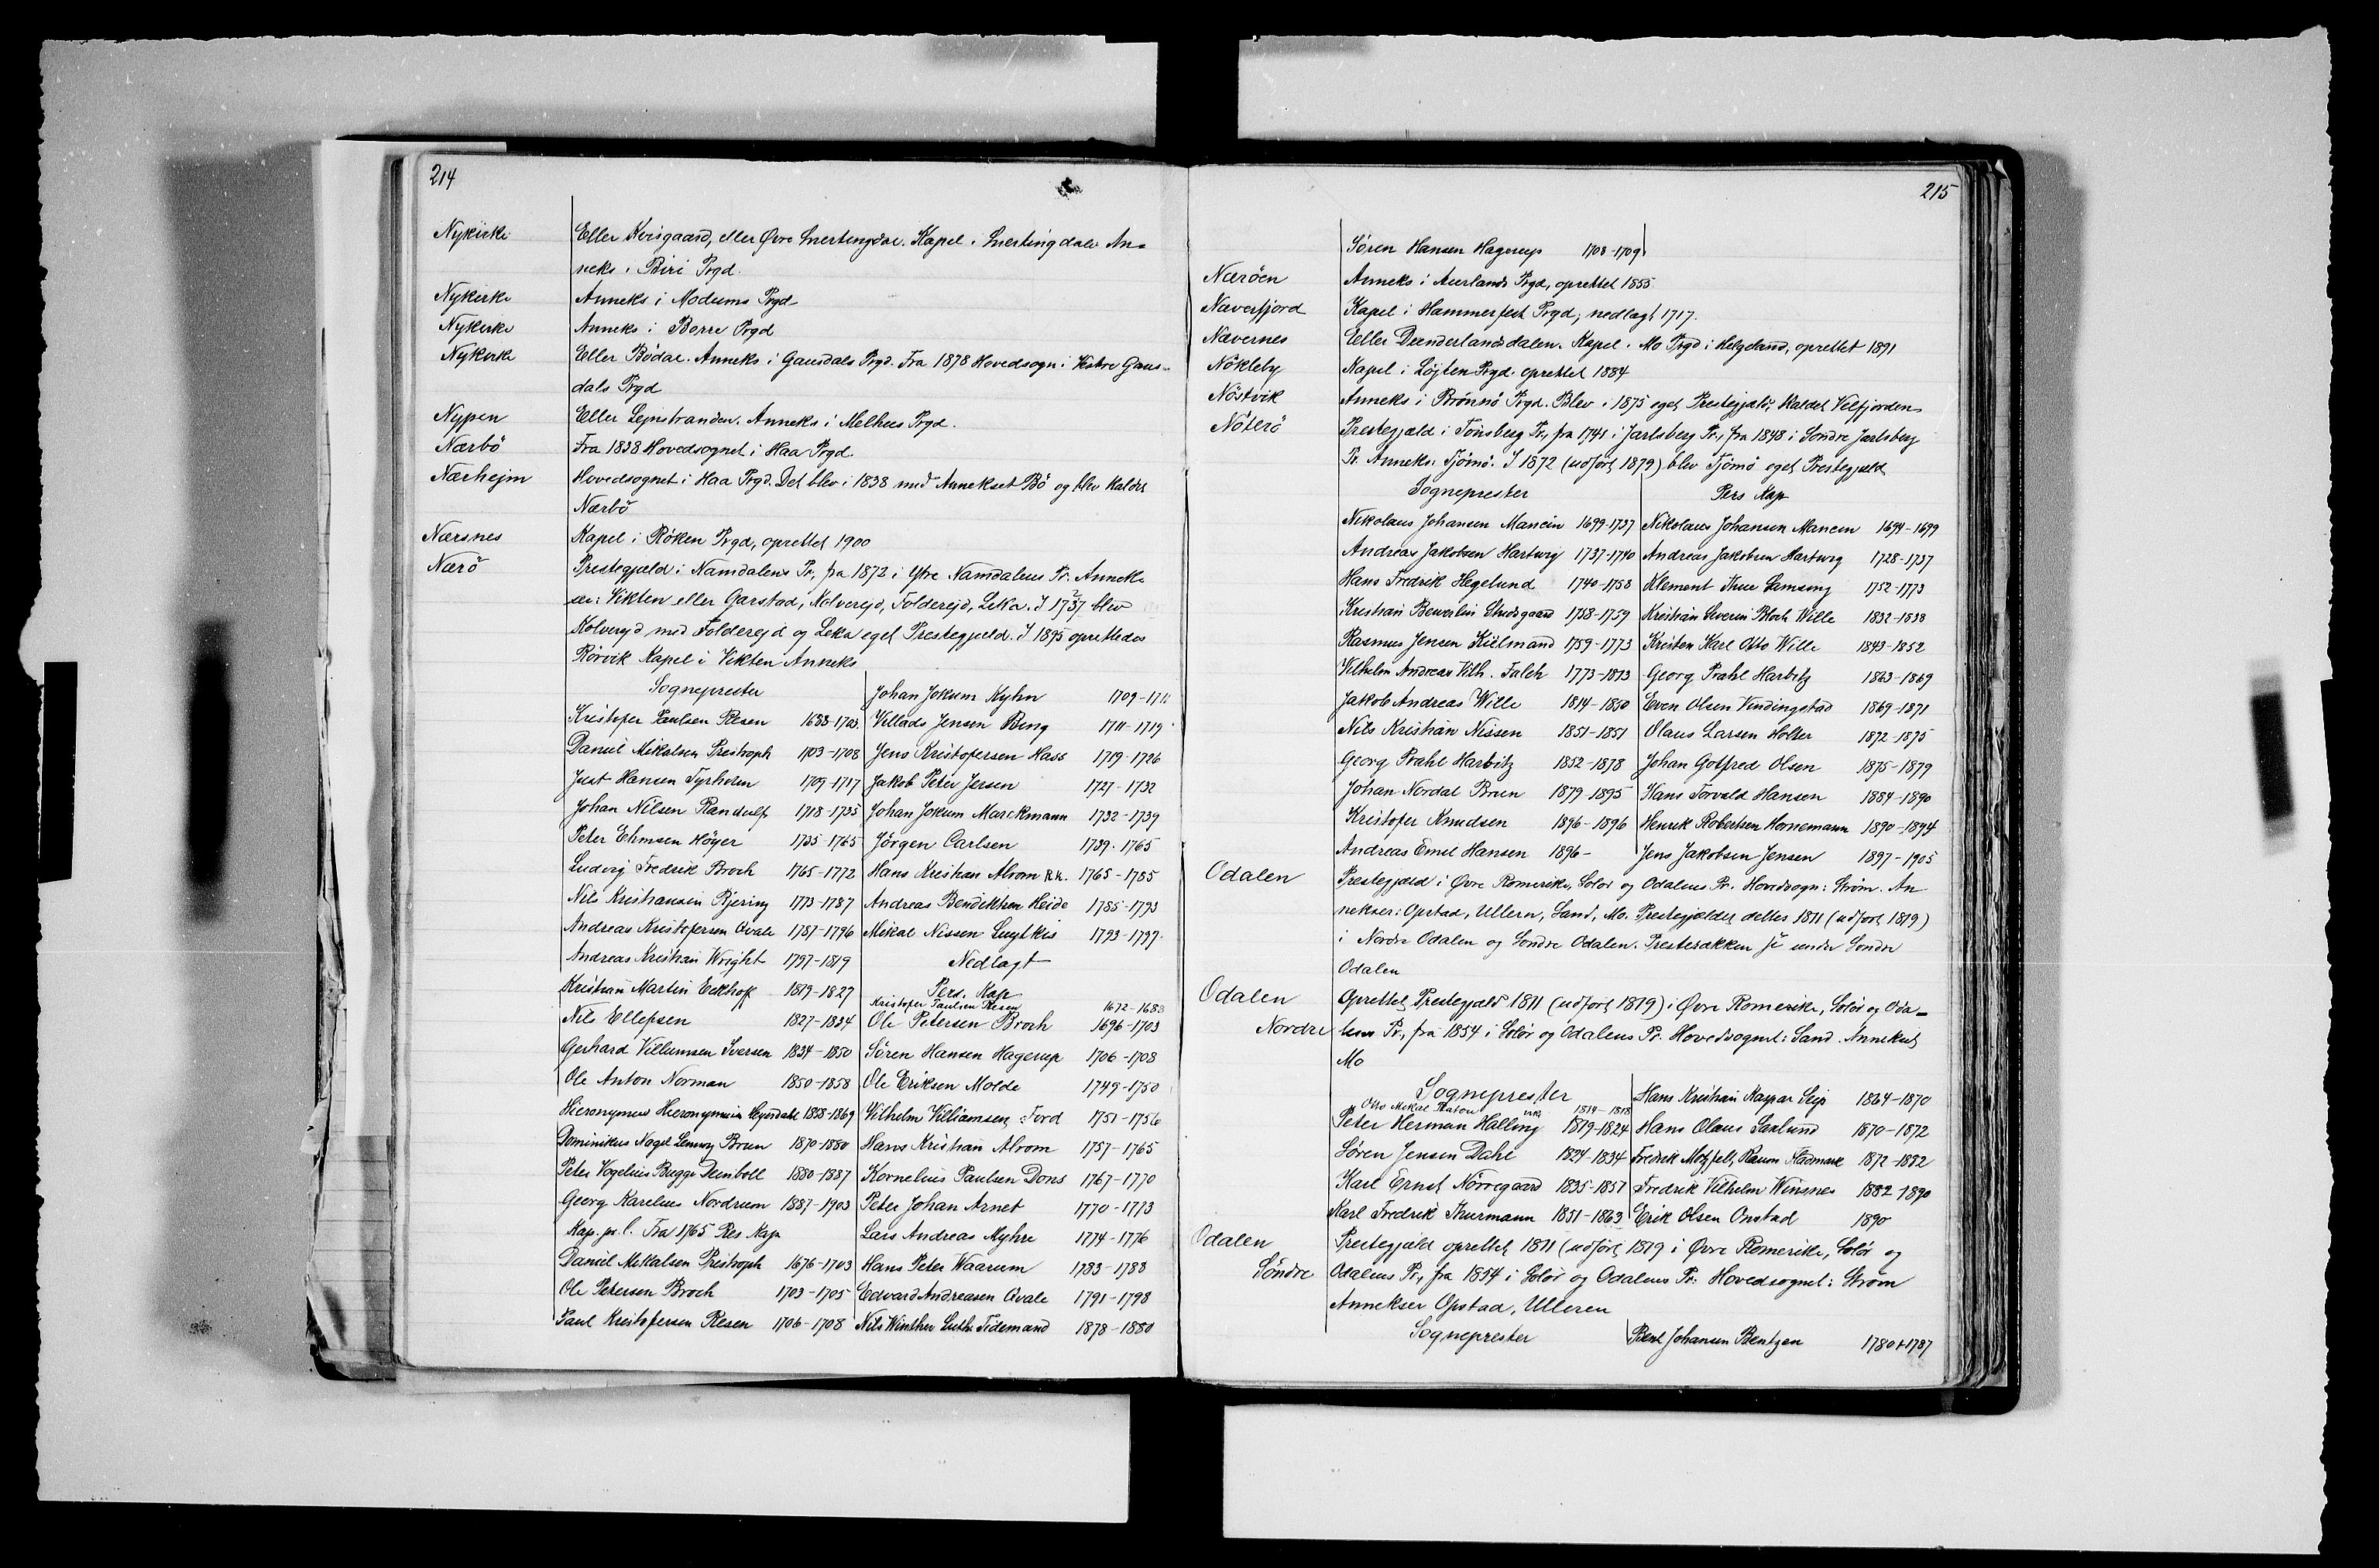 214
Nykirke Eller Kvisgaard, eller Øvre Snertingdal. Kapel i Snertingdals An-
neks i Biri Prgd.
Nykirke Anneks i Modums Prgd
Nykirke Anneks i Borre Prgd
Nykirke Eller Bödal. Anneks i Gausdals Prgd. Fra 1878 Hovedsogn i Vestre Gaus-
dals Prgd
Nypen Eller Lejnstranden. Anneks i Melhus Prgd.
Nærbö Fra 1838 Hovedsognet i Haa Prgd.
Nærhejm Hovedsognet i Haa Prgd. Det blev i 1838 med Annekset Bö og blev kaldet
Nærbö
Nærsnes Kapel i Röken Prgd, oprettet 1900
Nærö Prestegjæld i Namdalens Pr, fra 1872 i Ytre Namdalens Pr. Annek-
ser: Vikten eller Garstad, Kolverejd, Folderejd, Leka. I 1737 blev
Kolverejd med Folderejd og Leka eget Prestegjæld. I 1895 oprettedes
Rörvik Kapel i Vikten Anneks
Sogneprester Johan Jokum Kyhn 1709-1711
Kristofer Paulsen Resen 1683-1703 Villads Jensen Bing 1711-1719
Daniel Mikalsen Pristroph 1703-1708 Jens Kristofersen Hass 1719-1726
Just Hansen Tyrholm 1709-1717 Jakob Peter Jersen 1727-1732
Johan Nilsen Randulf 1718-1735 Johan Jokum Marckmann 1732-1739
Peter Ehmsen Höyer 1735-1765 Jörgen Carlsen 1739-1765
Ludvig Fredrik Broch 1765-1772 Hans Kristian Alrom R.K. 1765-1785
Nils Kristiansen Bjering 1773-1787 Andreas Bendiktsen Heide 1785-1793
Andreas Kristofersen Qvale 1787-1796 Mikal Nissen Luytkis 1793-1797
Andreas Kristian Wright 1797-1819 Nedlagt
Kristian Martin Eckhoff 1819-1827 Pers. Kap
Kristofer Paulsen Resen 1672-1683
Nils Ellefsen 1827-1834 Ole Petersen Broch 1696-1703
Gerhard Villumsen Iversen 1834-1850 Sören Hansen Hagerup 1706-1708
Ole Anton Norman 1850-1858 Ole Eriksen Molde 1749-1750
Hieronymus Hieronymussen Heyerdahl 1858-1869 Vilhelm Villiamsen Ford 1751-1756
Dominikus Nagel Lemvig Brun 1870-1880 Hans Kristian Alrom 1757-1765
Peter Vogelius Bugge Deinboll 1880-1887 Kornelius Paulsen Dons 1767-1770
Georg Karelius Nordrum 1887-1903 Peter Johan Arnet 1770-1773
Kap. p. l. Fra 1765 Res Kap Lars Andreas Myhre 1774-1776
Daniel Mikalsen Pristroph 1676-1703 Hans Peter Waarum 1783-1788
Ole Petersen Broch 1703-1705 Edvard Andreasen Qvale 1791-1798
Paul Kristofersen Resen 1706-1708 Nils Winther Luth. Tidemand 1878-1880
215
Sören Hansen Hagerup 1708-1709
Næröen Anneks i Aurlands Prgd, oprettet 1855
Næverfjord Kapel i Hammerfest Prgd, nedlagt 1717.
Nævernes Eller Dunderlandsdalen. Kapel i Mo Prgd i Helgeland, oprettet 1891
Nökleby Kapel i Löjten Prgd. oprettet 1884
Nöstvik Anneks i Brönnö Prgd. Blev i 1875 eget Prestegjæld, kaldet Velfjorden
Nöterö Prestegjæld i Tönsberg Pr, fra 1741 i Jarlsberg Pr, fra 1848 i Sondre Jarlsberg
Pr. Anneks: Tjömö. I 1872 (udfört 1879) blev Tjömö eget Prestegjæld
Sogneprester Pers Kap
Nikolaus Johansen Mancin 1699-1737 Nikolaus Johansen Mancin 1694-1699
Andreas Jakobsen Hartwig 1737-1740 Andreas Jakobsen Hartwig 1728-1737
Hans Fredrik Hegelund 1740-1758 Klement Thue Lemsing 1752-1773
Kristian Beverlin Studsgaard 1758-1759 Kristian Severin Bloch Wille 1832-1838
Rasmus Jensen Kiilmand 1759-1773 Kristen Karl Otto Wille 1843-1852
Vilhelm Andreas Vilh. Falch 1773-1813 Georg Prahl Harbitz 1863-1869
Jakob Andreas Wille 1814-1850 Even Olsen Vindingstad 1869-1871
Nils Kristian Nissen 1851-1851 Olaus Larsen Holter 1872-1875
Georg Prahl Harbitz 1852-1878 Johan Gotfred Olsen 1875-1879
Johan Nordal Brun 1879-1895 Hans Torvald Hansen 1884-1890
Kristofer Knudsen 1896-1896 Henrik Robertsen Hornemann 1890-1894
Andreas Emil Hansen 1896- Jens Jakobsen Jensen 1897-1905
Odalen Prestegjæld i Øvre Romerike, Solör og Odalens Pr. Hovedsogn: Ström. An
nekser: Opstad, Ullern, Sand, Mo. Prestegjældet deltes 1811 (udfört 1819)
i Nordre Odalen og Sondre Odalen. Presterækken se under Sondre
Odalen
Odalen Oprettet Prestegjæld 1811 (udfört 1819) i Øvre Romerike, Solör og Oda-
Nordre lens Pr, fra 1854 i Solör og Odalens Pr. Hovedsognet: Sand. Annekset
Mo
Sogneprester Hans Kristian Kaspar Seip 1864-1870
1814-1818
Peter Herman Halling 1819-1824 Hans Olaus Saxlund 1870-1872
Sören Jensen Dahl 1824-1834 Fredrik Motzfelt Raum Fladmark 1872-1882
Karl Ernst Nörregaard 1835-1851 Fredrik Vilhelm Winsnes 1882-1890
Karl Fredrik Thurmann 1851-1863 Erik Olsen Onstad 1890
Odalen Prestegjæld oprettet 1811 (udfört 1819 i Øvre Romerike, Solör og
Söndre Odalens Pr, fra 1854 i Solör og Odalens Pr. Hovedsognet: Ström
Annekser Opstad, Ulleren
Sogneprester Bent Johansen Bentzen 1780-1787